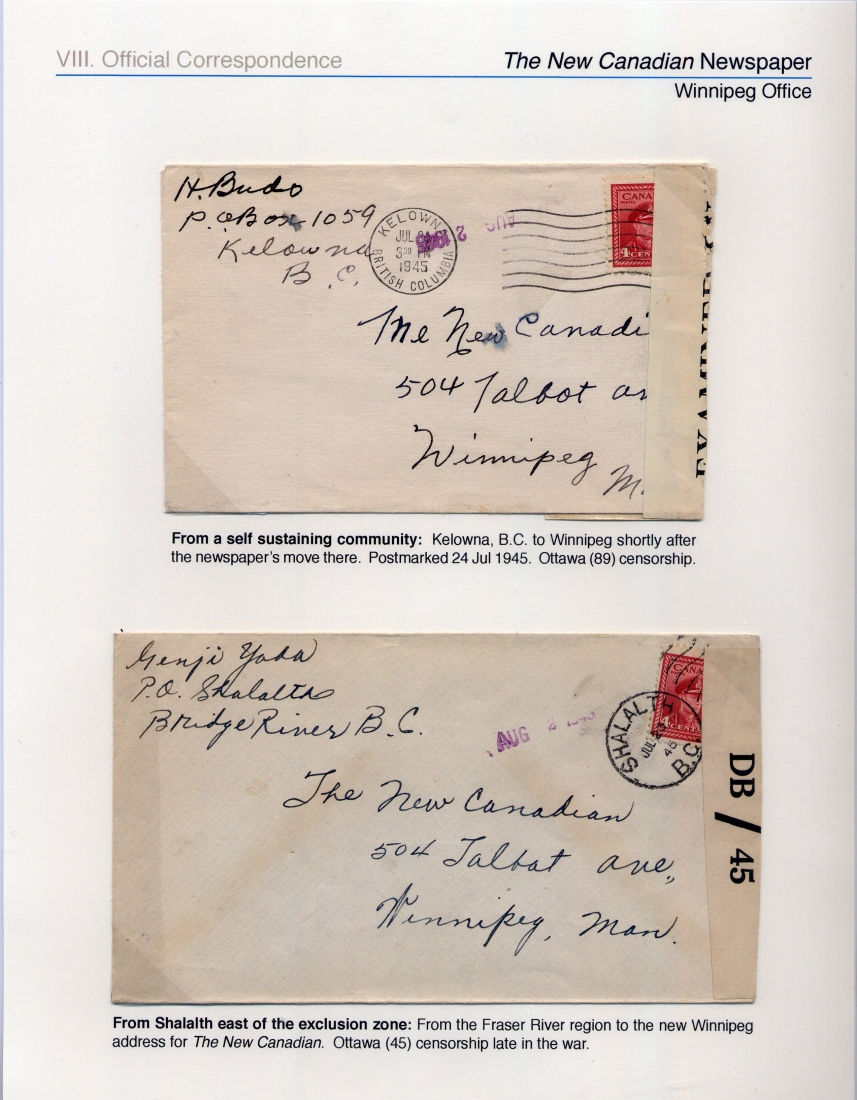 VIII. Official Correspondence
The New Canadian Newspaper
Winnipeg Office
H. Budo
P.O Box 1059
Kelowna
B.C.
KELOWNA
JUL 24
3 30 PM
1945
BRITISH COLUMBIA
AUG 2 1945
CANA
4 CEN
EXAMINED
The New Canadi
504 Talbot av
Winnipeg
M
From a self sustaining community: Kelowna, B.C. to Winnipeg shortly after
the newspaper's move there. Postmarked 24 Jul 1945. Ottawa (89) censorship.
Genji Yada
P.O. Shalalth
Bridge River B.C.
AUG 2 1945
CANA
4 CENTS
SHALALTH
JUL
45
B.C.
DB / 45
The New Canadian
504 Talbot ave,
Winnipeg, Man.
From Shalalth east of the exclusion zone: From the Fraser River region to the new Winnipeg
address for The New Canadian. Ottawa (45) censorship late in the war.